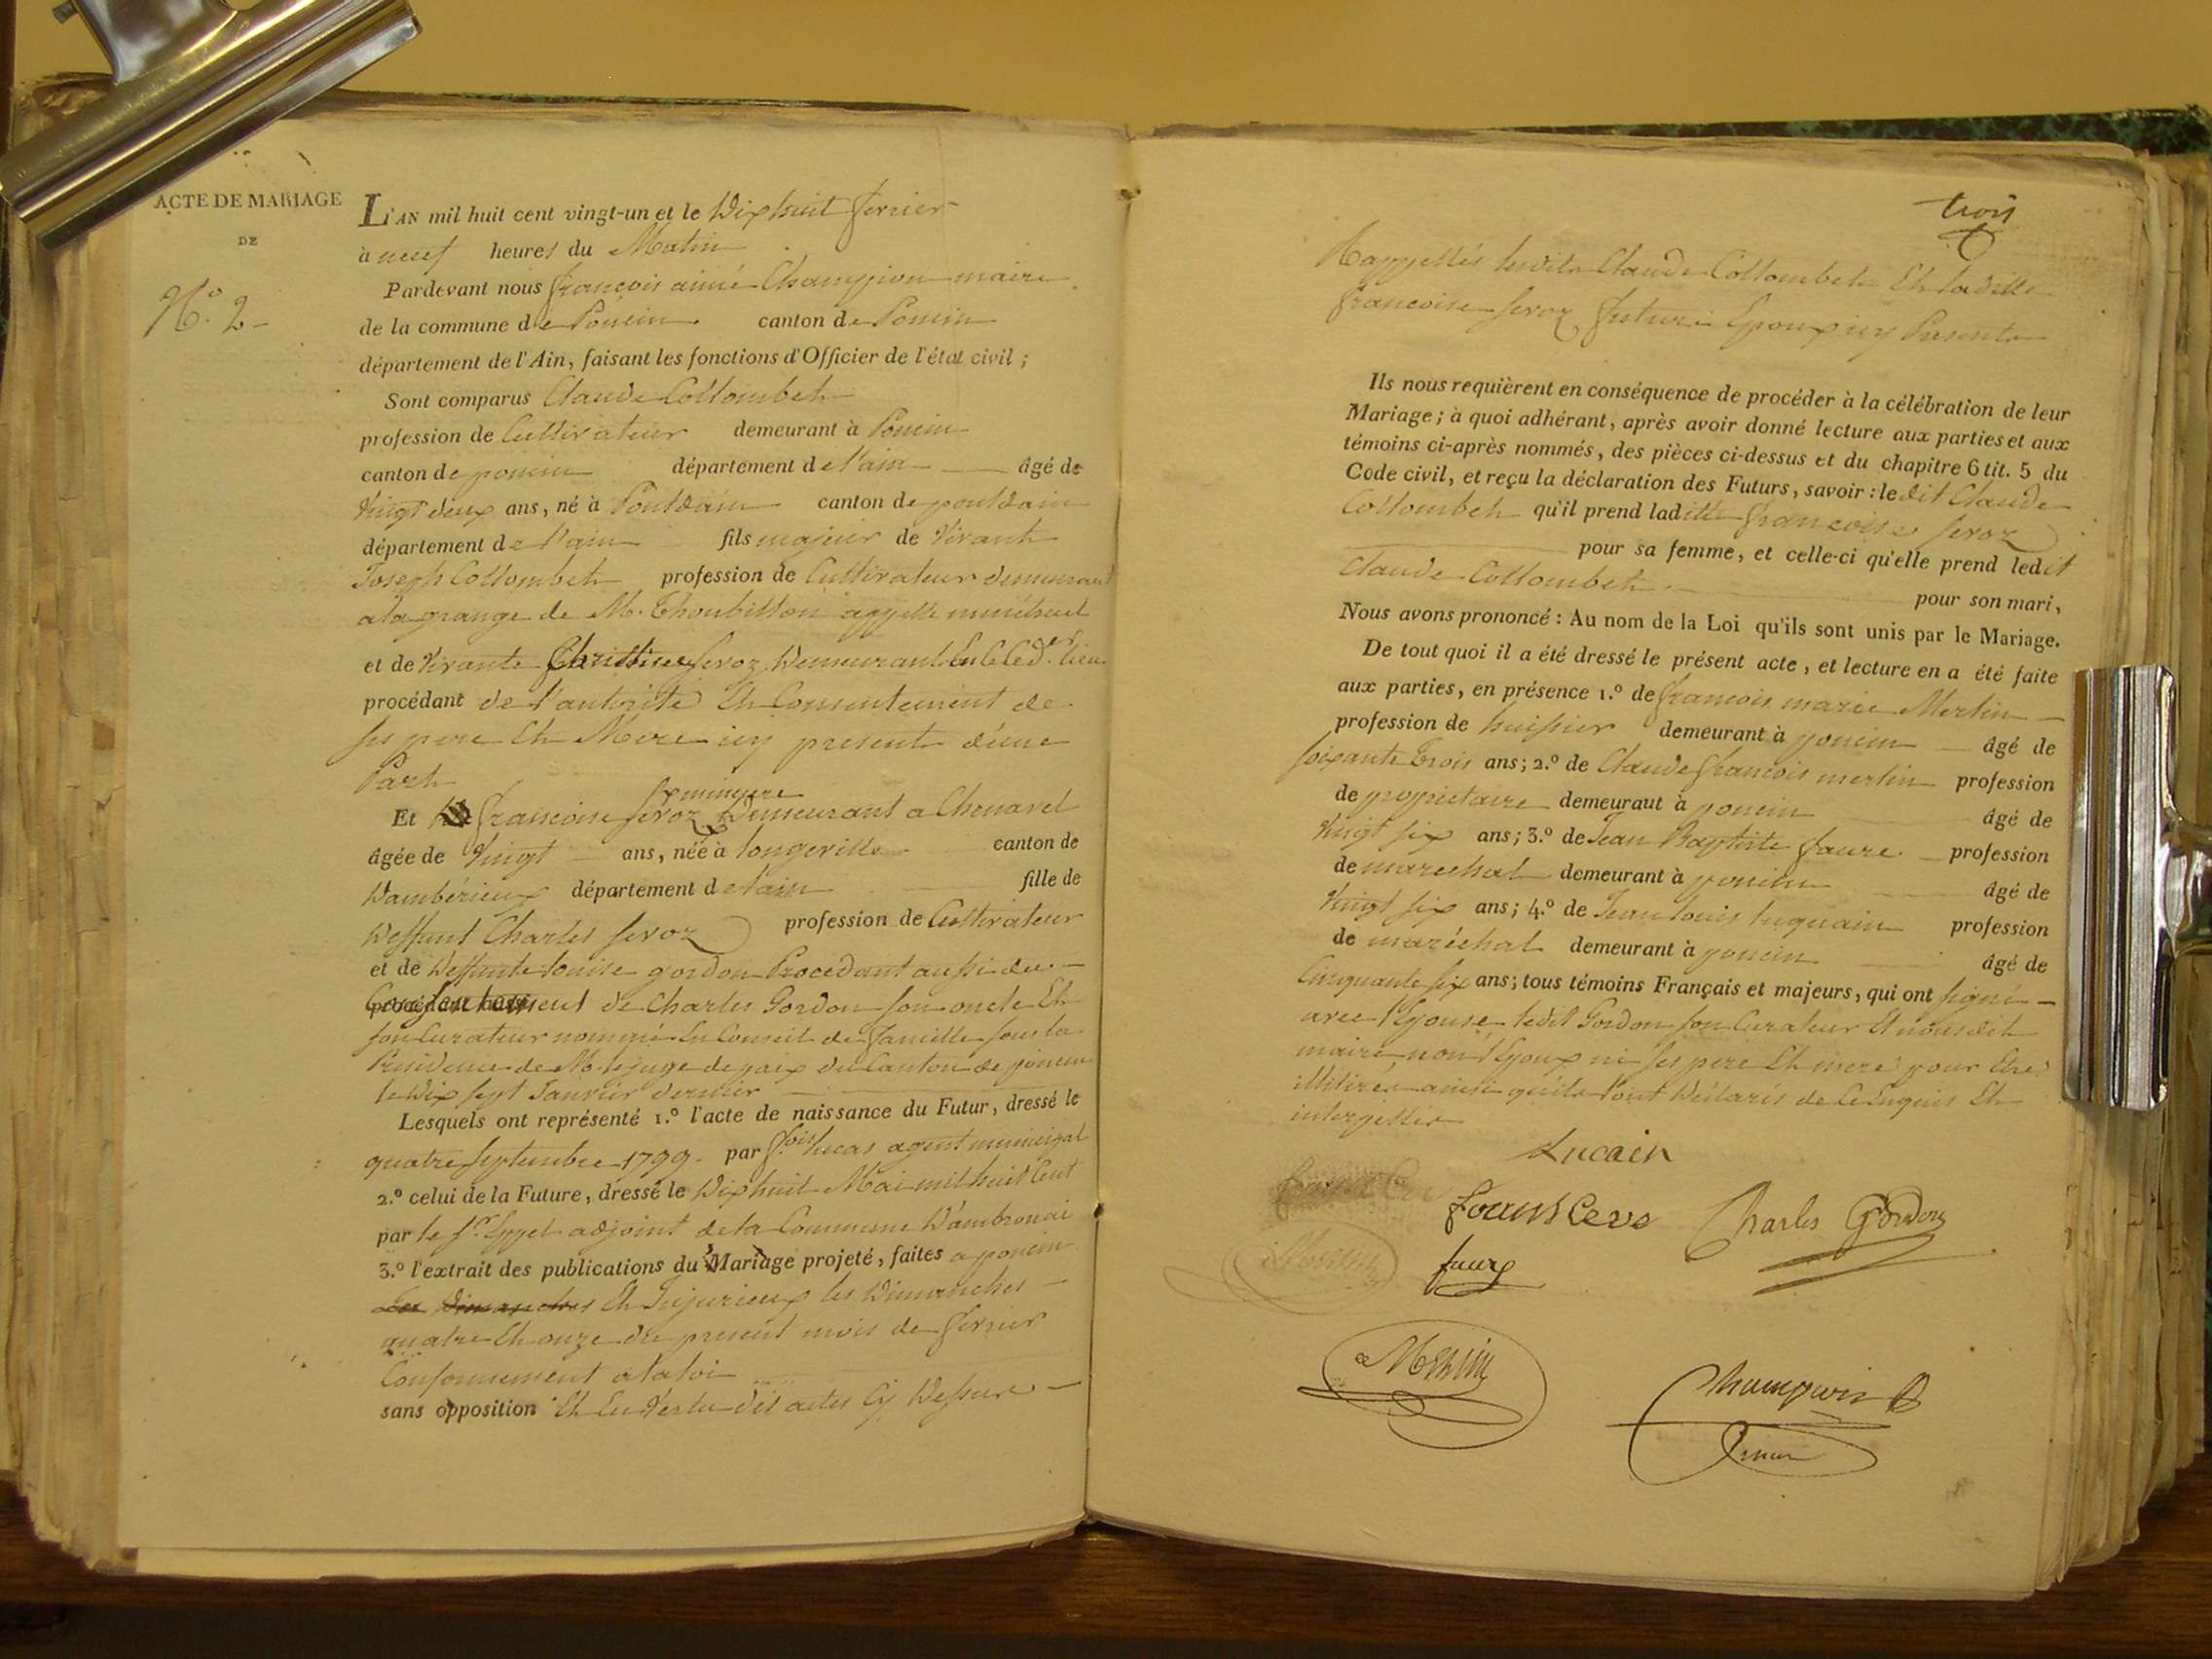 ACTE DE MARIAGE
DE
N.o 2
L'AN mil huit cent vingt-un et le Dix huit fevrier
à neuf heures du Matin
Pardevant nous françois aimé Champion maire
de la commune de Poncin canton de Poncin
département de l'Ain, faisant les fonctions d'Officier de l'état civil ;
Sont comparus Claude Collombet
profession de Cultivateur demeurant à Poncin
canton de poncin département de l'ain âgé de
Vingt deux ans, né à Pontdain canton de pontdain
département de l'ain fils majeur de Vivant
Joseph Collombet profession de Cultivateur demeurant
a la grange de M. Thoubillon appellé
et de Vivante Christine feroz Demeurant lieu
procédant de l'autorité Et Consentement de
ses pere Et Mere icy present d'une
Part
Et françoise feroz Demeurant a Chenavel
âgée de Vingt ans, née à longeville canton de
Dambérieux département de l'ain fille de
Deffunt Charles feroz profession de Cultivateur
et de Deffunte louise gordon Procedant aussi du
de Charles Gordon son oncle Et
son Curateur nommé En Conseil de famille sous la
Présidence de M. le juge de paix du Canton de poncin
le Dix sept Janvier dernier
Lesquels ont représenté 1.º l'acte de naissance du Futur, dressé le
quatre septembre 1799. par fois lucas agent municipal
2.º celui de la Future, dressé le Dix huit Mai mil huit Cent
par le Sr. adjoint de la Commune D'ambronai
3.º l'extrait des publications du Mariage projeté, faites a poncin
Les Dimanches Et Jujurieux les Dimanches
quatre Et onze du present mois de fevrier
Conformement a la loi
sans opposition Et En Vertu des actes Cy Dessus
trois
Rappellés lesdits Claude Collombet Et ladille
francoise feroz futurs Epoux icy Presents
Ils nous requièrent en conséquence de procéder à la célébration de leur
Mariage ; à quoi adhérant, après avoir donné lecture aux parties et aux
témoins ci-après nommés, des pièces ci-dessus et du chapitre 6 tit. 5 du
Code civil, et reçu la déclaration des Futurs, savoir : le dit Claude
Collombet qu'il prend laditte francoise feroz
pour sa femme, et celle-ci qu'elle prend ledit
Claude Collombet pour son mari,
Nous avons prononcé : Au nom de la Loi qu'ils sont unis par le Mariage.
De tout quoi il a été dressé le présent acte, et lecture en a été faite
aux parties, en présence 1.º de francois marie Merlin
profession de huissier demeurant à poncin âgé de
soixante trois ans ; 2.º de Claude francois merlin profession
de proprietaire demeuraut à poncin âgé de
Vingt six ans ; 3.º de Jean Baptiste faure profession
de marechal demeurant à poncin âgé de
Vingt six ans ; 4.º de Jean louis luquain profession
de maréchal demeurant à poncin âgé de
Cinquante six ans ; tous témoins Français et majeurs, qui ont signé
avec l'Epouse ledit Gordon son Curateur Et nous dit
maire, non l'Epoux ni ses pere Et mere pour Etre
illitirés ainsi qu'ils l'ont Déclarés de Ce Enquis Et
interpellés
Lucain
Charles Gordon
faure
Merlin